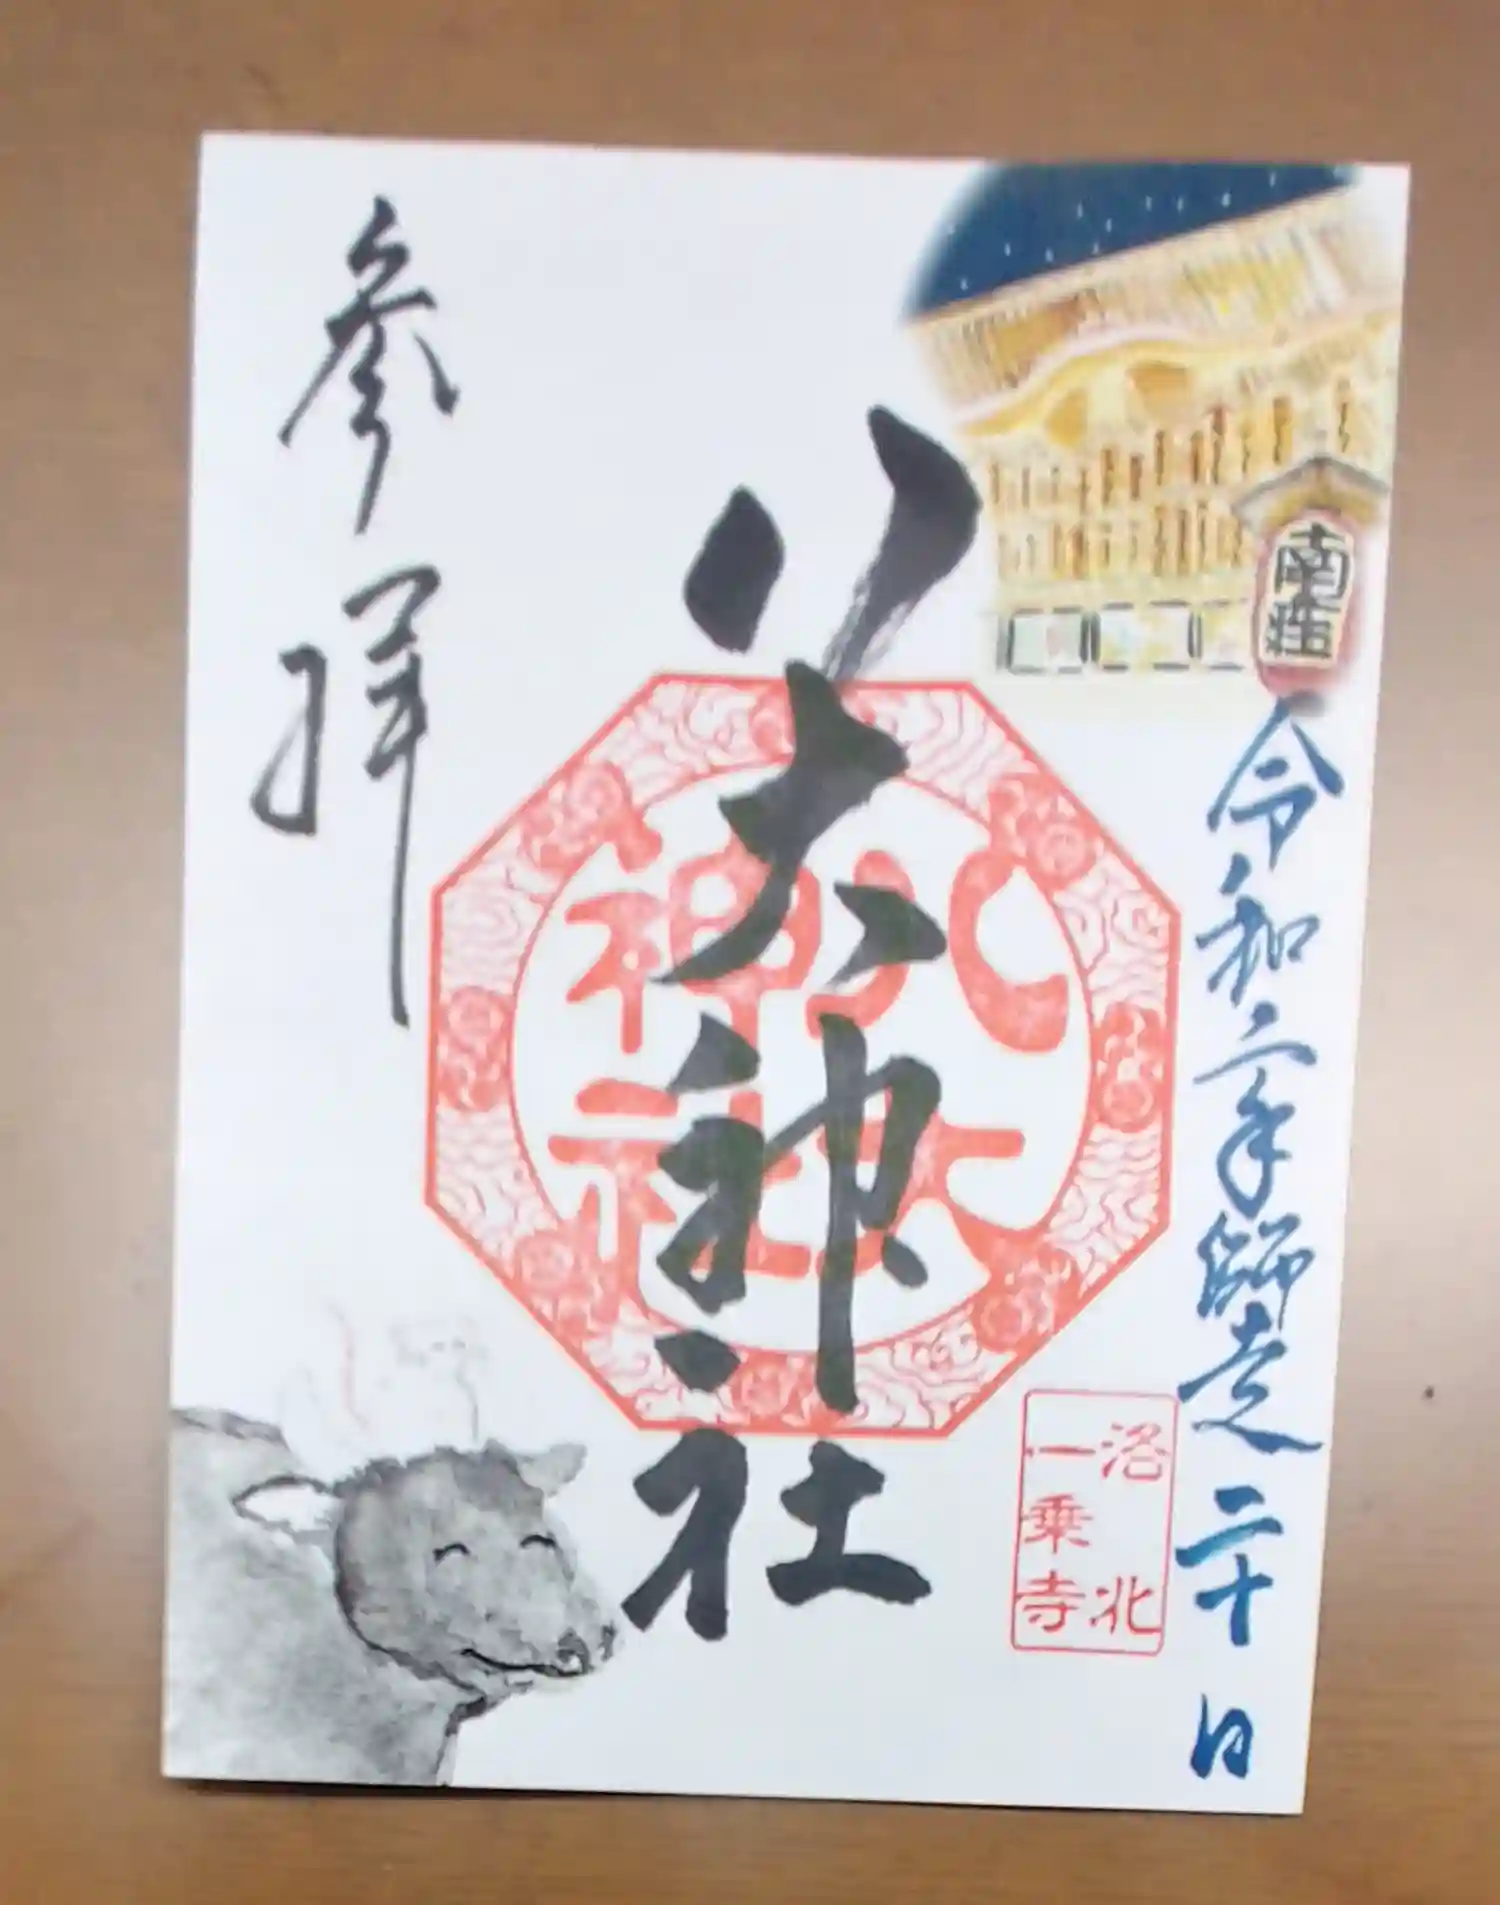 南座
令和二年師走二十日
洛北
一乗寺
八大神社
八大
神社
参拝